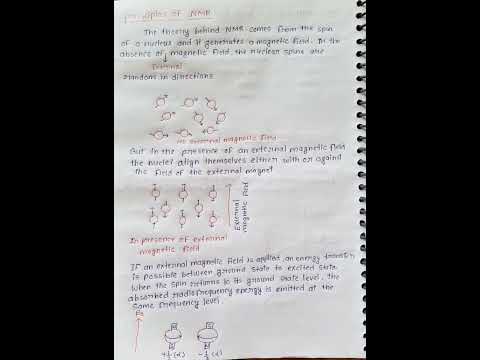 principles of NMR
The theory behind NMR comes from the spin
of a nucleus and it generates a magnetic field. In the
absence of magnetic field, the nuclear spins are
External
Random in directions
no external magnetic field
But in the presence of an external magnetic field
the nuclei align themselves either with or against
the field of the external magnet
External
magnetic field
In presence of external
magnetic field
If an external magnetic field is applied, an energy transfer
is possible between ground state to excited state.
When the spin returns to its ground state level, the
absorbed radiofrequency energy is emitted at the
same frequency level.